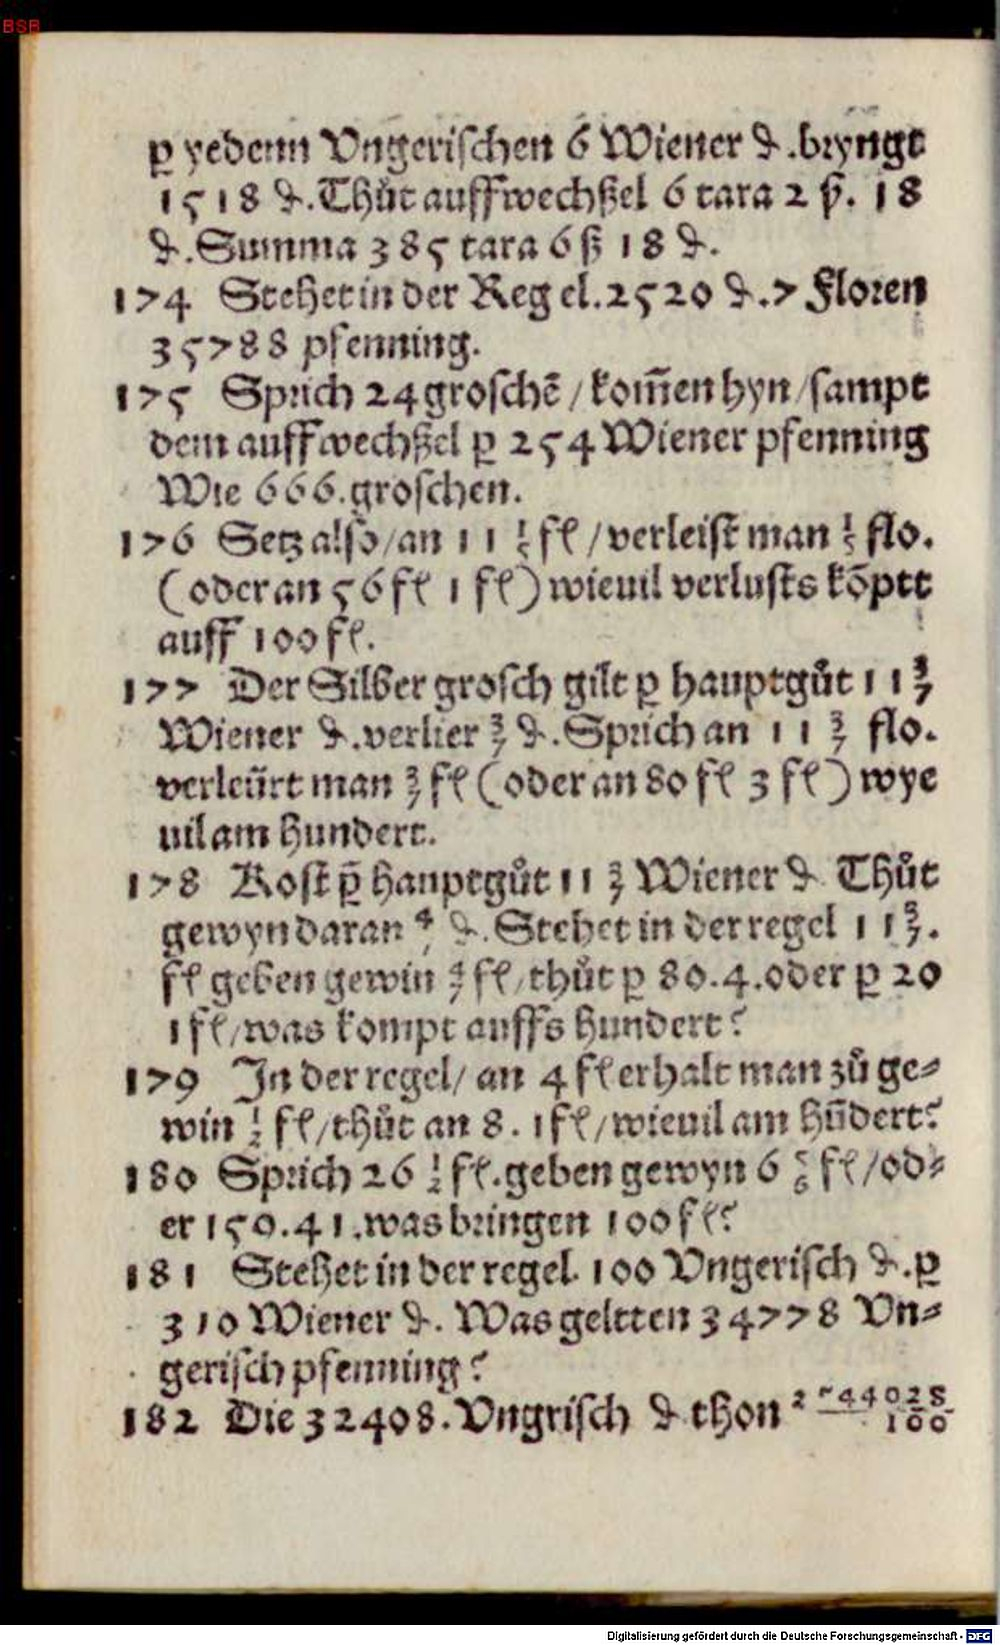 BSB
ꝑ yedenn Vngerischen 6 Wiener ₰.bryngt
1518 ₰.Thůt auffwechßel 6 tara 2 ß. 18
₰.Summa 385 tara 6 ß 18 ₰.
174 Stehet in der Regel.2520 ₰.7 Floren
35788 pfenning.
175 Sprich 24 groschē / kom̄en hyn / sampt
dem auffwechßel ꝑ 254 Wiener pfenning
Wie 666.groschen.
176 Setz also / an 11 1/5 fl / verleist man 1/5 flo.
(oder an 56 fl 1 fl) wieuil verlusts kōptt
auff 100 fl.
177 Der Silber grosch gilt ꝑ hauptgůt 11 3/7
Wiener ₰.verlier 3/7 ₰.Sprich an 11 3/7 flo.
verleürt man 3/7 fl (oder an 80 fl 3 fl) wye
uil am hundert.
178 Kost ꝑ̄ hauptgůt 11 3/7 Wiener ₰ Thůt
gewyn daran 4/7 ₰. Stehet in der regel 11 3/7.
fl geben gewin 4/7 fl / thůt ꝑ 80.4.oder ꝑ 20
1 fl / was kompt auffs hundert?
179 In der regel / an 4 fl erhalt man zů ge⸗
win 1/2 fl / thůt an 8. 1 fl / wieuil am hūdert?
180 Sprich 26 1/2 fl.geben gewyn 6 5/6 fl / od⸗
er 159.41.was bringen 100 fl?
181 Stehet in der regel. 100 Vngerisch ₰.ꝑ
310 Wiener ₰. Was geltten 34778 Vn⸗
gerisch pfenning?
182 Die 32408.Vngrisch ₰ thon
Digitalisierung gefördert durch die Deutsche Forschungsgemeinschaft - DFG